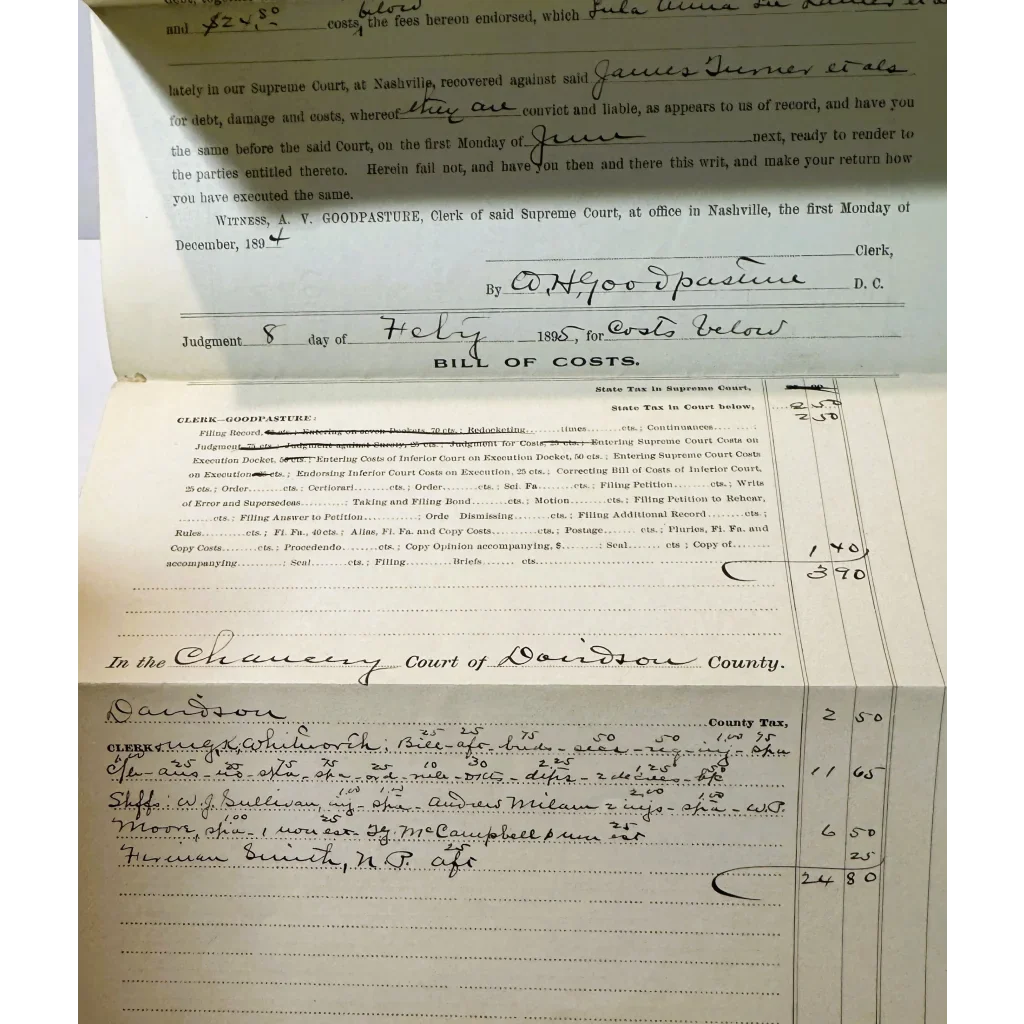 below
and $24.80 costs, the fees hereon endorsed, which Lula Anna
lately in our Supreme Court, at Nashville, recovered against said James Turner et als
for debt, damage and costs, whereof they are convict and liable, as appears to us of record, and have you
the same before the said Court, on the first Monday of June next, ready to render to
the parties entitled thereto. Herein fail not, and have you then and there this writ, and make your return how
you have executed the same.
WITNESS, A. V. GOODPASTURE, Clerk of said Supreme Court, at office in Nashville, the first Monday of
December, 1894
Clerk,
By W. H. Goodpasture D. C.
Judgment 8 day of Feby 1895, for Costs below
BILL OF COSTS.
State Tax in Supreme Court,
State Tax in Court below, 2 50
CLERK—GOODPASTURE: 2 50
Filing Record, cts.; Entering on seven Dockets, 70 cts.; Redocketing......times......cts.; Continuances......;
Judgment, 75 cts.; Judgment against Surety, 25 cts.; Judgment for Costs, 25 cts.; Entering Supreme Court Costs on
Execution Docket, 50 cts.; Entering Costs of Inferior Court on Execution Docket, 50 cts.; Entering Supreme Court Costs
on Execution cts.; Endorsing Inferior Court Costs on Execution, 25 cts.; Correcting Bill of Costs of Inferior Court,
25 cts.; Order........cts.; Certiorari........cts.; Order........cts.; Sci. Fa........cts.; Filing Petition........cts.; Writs
of Error and Supersedeas..........; Taking and Filing Bond........cts.; Motion........cts.; Filing Petition to Rehear,
........cts.; Filing Answer to Petition............; Orde Dismissing........cts.; Filing Additional Record........cts.;
Rules........cts.; Fi. Fa., 40 cts.; Alias, Fi. Fa. and Copy Costs........cts.; Postage........cts.; Pluries, Fi. Fa. and
Copy Costs........cts.; Procedendo........cts.; Copy Opinion accompanying, $........; Seal........cts; Copy of........ 1 40
accompanying........; Seal........cts.; Filing........Briefs........cts........ 3 90
In the Chancery Court of Davidson County.
Davidson County Tax, 2 50
25 25 75 50 50 1.00 75
CLERK: Whitworth; Bill - afr - bnds - secs - reg - inj - spa
25 75 75 25 10 30 2.25 1.25 50
ans - no - spa - ord - dkts - difs - 2 decrees - 11 65
1.00 1.00 2.00 1.00
Shffs: W. J. Sullivan, inj - spa - Andrew Milam 2 injs - spa - W. P.
1.00 25 25
Moore, spa - 1 non est - McCampbell non est 6 50
25
Smith, N. P. afr 25
24 80